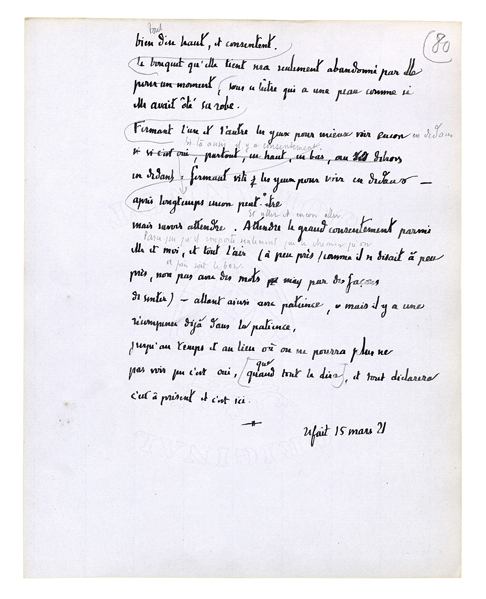 80
tout
bien d'en haut, et consentent.
le bouquet qu'elle tient sera seulement abandonné par elle
pour un moment, sous l'être qui a une peau comme si
elle avait ôté sa robe.
Fermant l'un et l'autre les yeux pour mieux voir encore en dedans
si tu aussi il y a consentement
si si c'est oui, partout, en haut, en bas, au dehors
en dedans, fermant vite les yeux pour voir en dedans —
après longtemps encore peut-être
et aller et encore aller
mais savoir attendre. Attendre le grand consentement parmi
elle et moi, et tout l'air (à peu près / comme il se disait à peu
près, non pas avec des mots mais par des façons
de sentir) — allant ainsi avec patience, mais il y a une
récompense déjà dans la patience,
jusqu'au temps et au lieu où on ne pourra plus ne
pas voir que c'est oui, [quand tout le dira], et tout déclarera
que
c'est à présent et c'est ici.
refait 15 mars 21